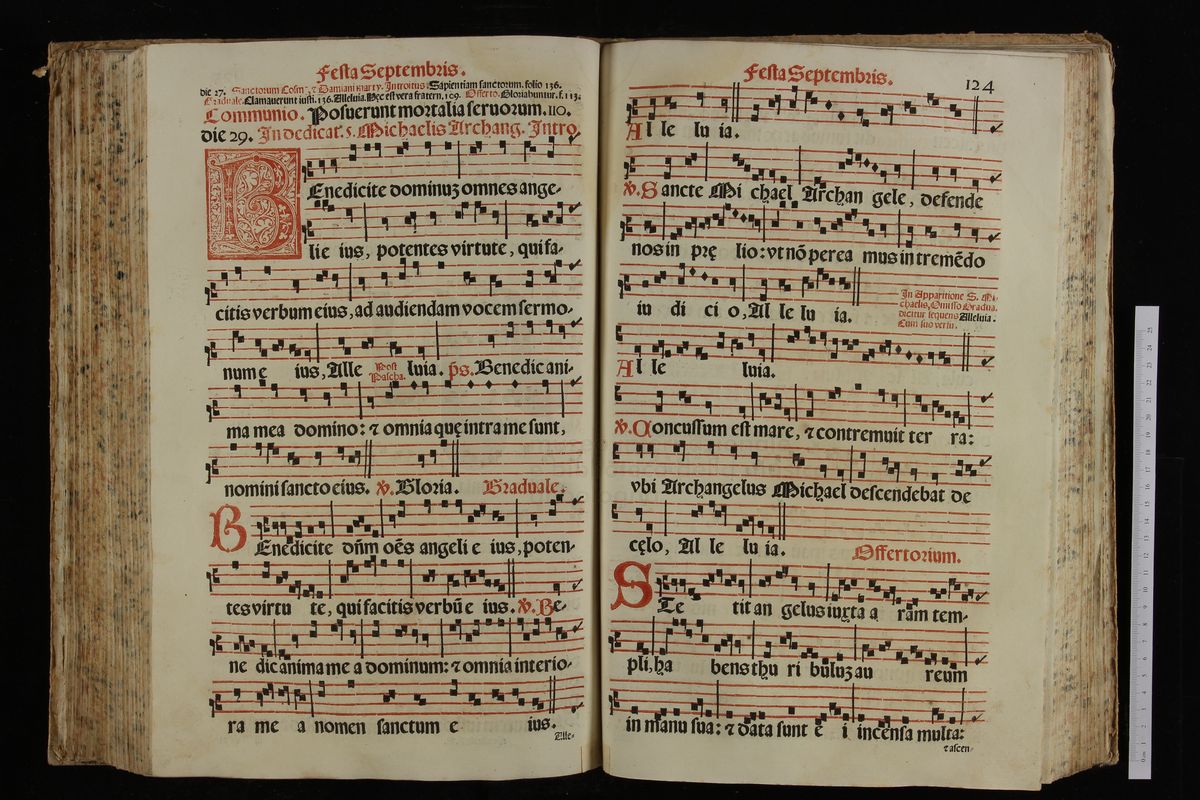 Festa Septembris.
die 27. Sanctorum Cosmę, ⁊ Damiani marty. Introitus. Sapientiam sanctorum. folio 136.
Graduale. Clamauerunt iusti. 136. Alleluia. Hęc est vera fratern. 109. Offerto. Gloriabuntur. f. 113.
Communio. Posuerunt mortalia seruorum. 110.
die 29. In dedicat. S. Michaelis Archang. Intro.
BEnedicite dominuʒ omnes ange-
lie ius, potentes virtute, qui fa-
citis verbum eius, ad audiendam vocem sermo-
num e ius, Alle Post Pascha. luia. ps. Benedic ani-
ma mea domino: ⁊ omnia quę intra me sunt,
nomini sancto eius. ℣. Gloria. Graduale.
BEnedicite dn̄m oēs angeli e ius, poten-
tes virtu te, qui facitis verbū e ius. ℣. Be-
ne dic anima me a dominum: ⁊ omnia interio-
ra me a nomen sanctum e ius.
Alle-
Festa Septembris.
124
Al le lu ia.
℣. Sancte Mi chael Archan gele, defende
nos in prę lio: vt nō perea mus in tremēdo
iu di ci o, Al le lu ia.
In Apparitione S. Mi-
chaelis, Omisso Gradua.
dicitur sequens Alleluia.
Cum suo versu.
Al le luia.
℣. Concussum est mare, ⁊ contremuit ter ra:
vbi Archangelus Michael descendebat de
cęlo, Al le lu ia. Offertorium.
STe tit an gelus iuxta a ram tem-
pli, ha bens thu ri buluʒ au reum
in manu sua: ⁊ data sunt e i incensa multa:
⁊ ascen-